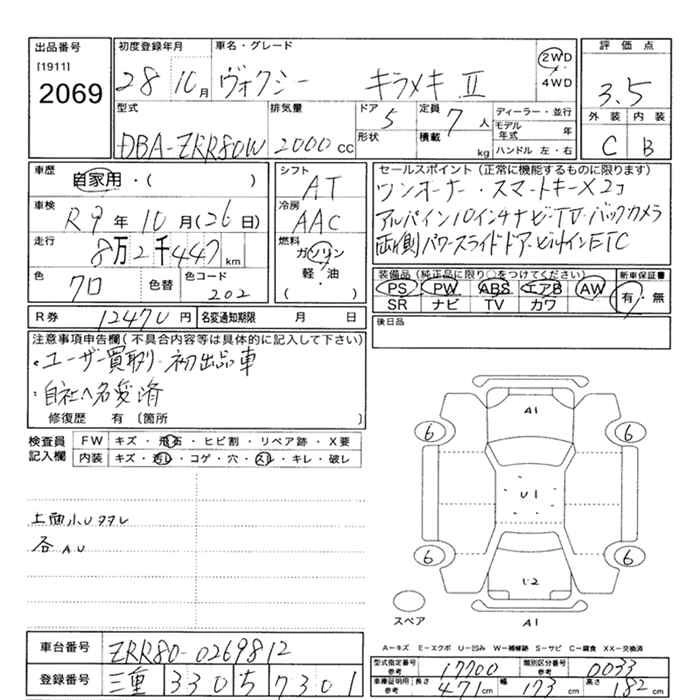 出品番号 初度登録年月 車名・グレード 評価点
[1911]
2069 28 10月 ヴォクシー キラメキ II 2WD 4WD 3.5
型式 排気量 ドア 定員 ディーラー・並行 外装 内装
DBA-ZRR80W 2000cc 5 7人 モデル年式 年
形状 積載 kg ハンドル 左・右 C B
車歴 自家用・( ) シフト AT セールスポイント(正常に機能するものに限ります)
ワンオーナー・スマートキーX2コ
車検 R9年10月(26日) 冷房 AAC アルパイン10インチナビ・TV・バックカメラ
走行 8万2千447km 燃料 ガソリン 軽・油 ( ) 両側パワースライドドア・ビルトインETC
色 クロ 色替 色コード 202
装備品(純正品に限り○をつけてください) 新車保証書
PS PW ABS エアB AW 有・無
SR ナビ TV カワ
R券 12470円 名変通知期限 月 日 後日品
注意事項申告欄(不具合内容等は具体的に記入して下さい)
・ユーザー買取り・初出品車
・自社へ名変済
修復歴 有 〔箇所 〕
検査員記入欄 FW キズ・飛石・ヒビ割・リペア跡・X要
内装 キズ・汚レ・コゲ・穴・スレ・キレ・破レ
A1
6 6
U1
上面小Uヌタレ
各AU
6 6
U2
スペア A1
A－キズ E－エクボ U－凹み W－補修跡 S－サビ C－腐食 XX－交換済
車台番号 ZRR80-0269812
型式指定番号 参考 17700 類別区分番号 参考 0033
登録番号 三重 330 ち 7301
車検証明用 参考 長さ 471cm 幅 173cm 高さ 182cm